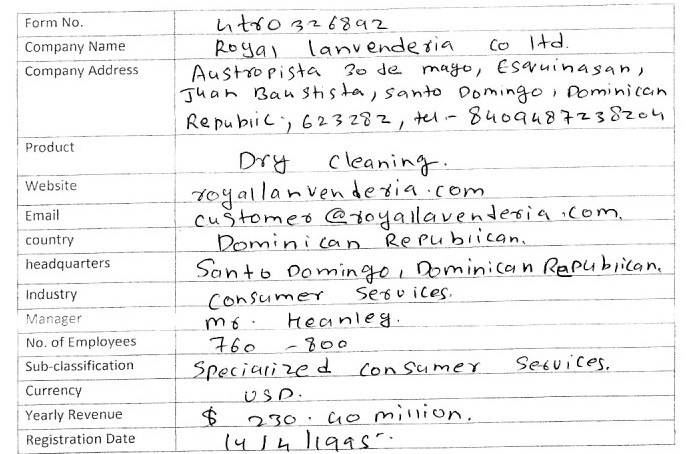 Form No. utro326892
Company Name Royal lanvenderia co ltd.
Company Address Austropista 30 de mayo, Esquinasan,
Juan Baustista, santo Domingo, Dominican
Republic, 623282, tel - 8409487238204
Product Dry cleaning.
Website royallanvenderia.com
Email customer@royallavenderia.com.
country Dominican Republican.
headquarters Santo Domingo, Dominican Republican.
Industry consumer Services.
Manager mr. Heanley.
No. of Employees 760 - 800
Sub-classification Specialized consumer Services.
Currency USD.
Yearly Revenue $ 230.40 million.
Registration Date 14/4/1995.